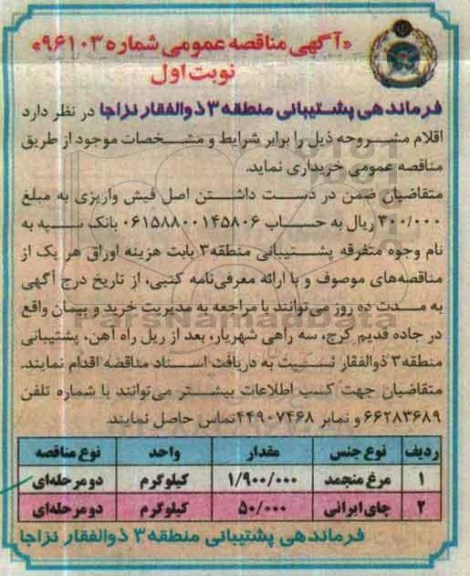 «آگهی مناقصه عمومی شماره ۹۶۱۰۳»
نوبت اول
فرماندهی پشتیبانی منطقه ۳ ذوالفقار نزاجا در نظر دارد
اقلام مشروحه ذیل را برابر شرایط و مشخصات موجود از طریق
مناقصه عمومی خریداری نماید.
متقاضیان ضمن در دست داشتن اصل فیش واریزی به مبلغ
۳۰۰/۰۰۰ ریال به حساب ۰۶۱۵۸۸۰۰۱۴۵۸۰۶ بانک سپه به
نام وجوه متفرقه پشتیبانی منطقه ۳ بابت هزینه اوراق هر یک از
مناقصه‌های موصوف و با ارائه معرفی‌نامه کتبی، از تاریخ درج آگهی
به مدت ده روز می‌توانند با مراجعه به مدیریت خرید و پیمان واقع
در جاده قدیم کرج، سه راهی شهریار، بعد از ریل راه آهن، پشتیبانی
منطقه ۳ ذوالفقار نسبت به دریافت اسناد مناقصه اقدام نمایند.
متقاضیان جهت کسب اطلاعات بیشتر می‌توانند با شماره تلفن
۶۶۲۸۳۶۸۹ و نمابر ۴۴۹۰۷۴۶۸ تماس حاصل نمایند.
ردیف نوع جنس مقدار واحد نوع مناقصه
۱ مرغ منجمد ۱/۹۰۰/۰۰۰ کیلوگرم دو مرحله‌ای
۲ چای ایرانی ۵۰/۰۰۰ کیلوگرم دو مرحله‌ای
فرماندهی پشتیبانی منطقه ۳ ذوالفقار نزاجا
ParsNamadData